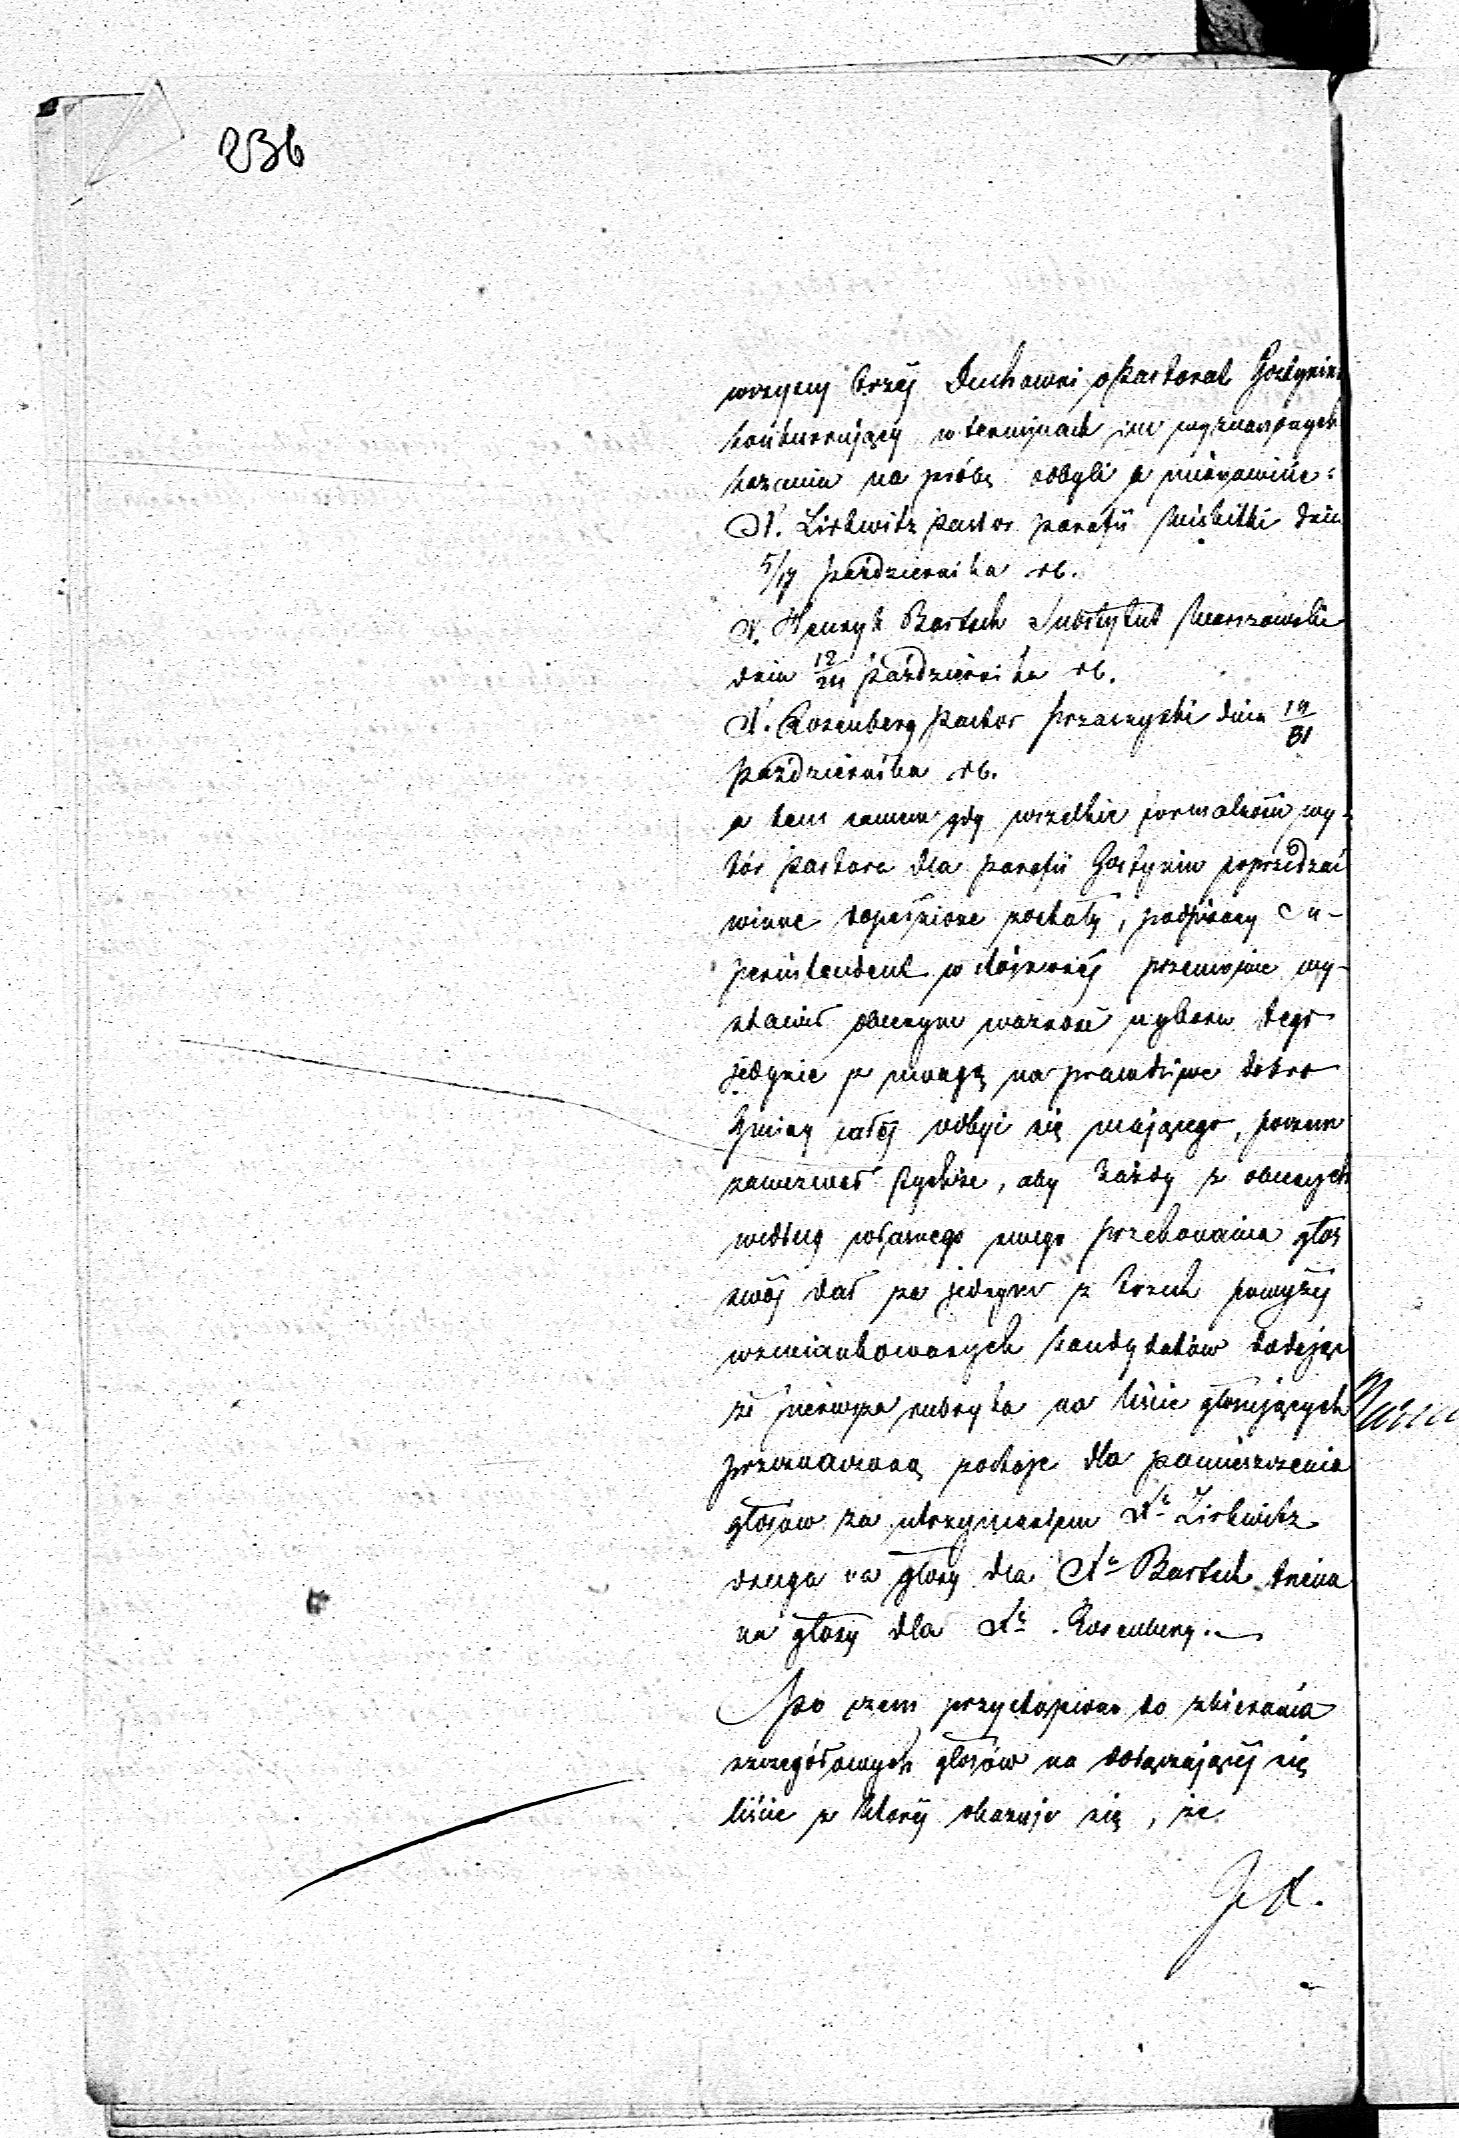 236
wszyscy trzéj Duchowni o Pastorat Gostynin
konkurujący w terminach im wyznaczonych
kazania na próbę odbyli a mianowicie:
X. Lirkwitz Pastor parafii dnia
5/17 Października rb.
X. Henryk Bartsch Substytut Warszawski
dnia 12/24 Października rb.
X. Rosenberg Pastor Przasnyski dnia 19/31
Października rb.
a tem samem gdy wszelkie formalności wy-
bór Pastora dla parafii Gostynin poprzedzać
winne dopełnione zostały, podpisany Su-
perintendent w stósownéj przemowie wy-
stawił obecnym ważność wyboru tego
jedynie z uwagą na prawdziwe dobro
Gminy całéj odbyć się mającego, poczem
zawezwał tychże, aby każdy z obecnych
według własnego swego przekonania głos
swój dał za jednym z trzech powyżéj
wzmiankowanych kandydatów dodając
że pierwsza rubryka na liście głosujących
przeznaczoną zostaje dla pomieszczenia
głosów za utrzymaniem Xa Lirkwitz
druga na głosy dla Xa Bartsch trzecia
na głosy dla Xa Rosenberg.
Po czem przystąpiono do zbierania
szczegółowych głosów na dołączającéj się
liście z któréj okazuje się, że